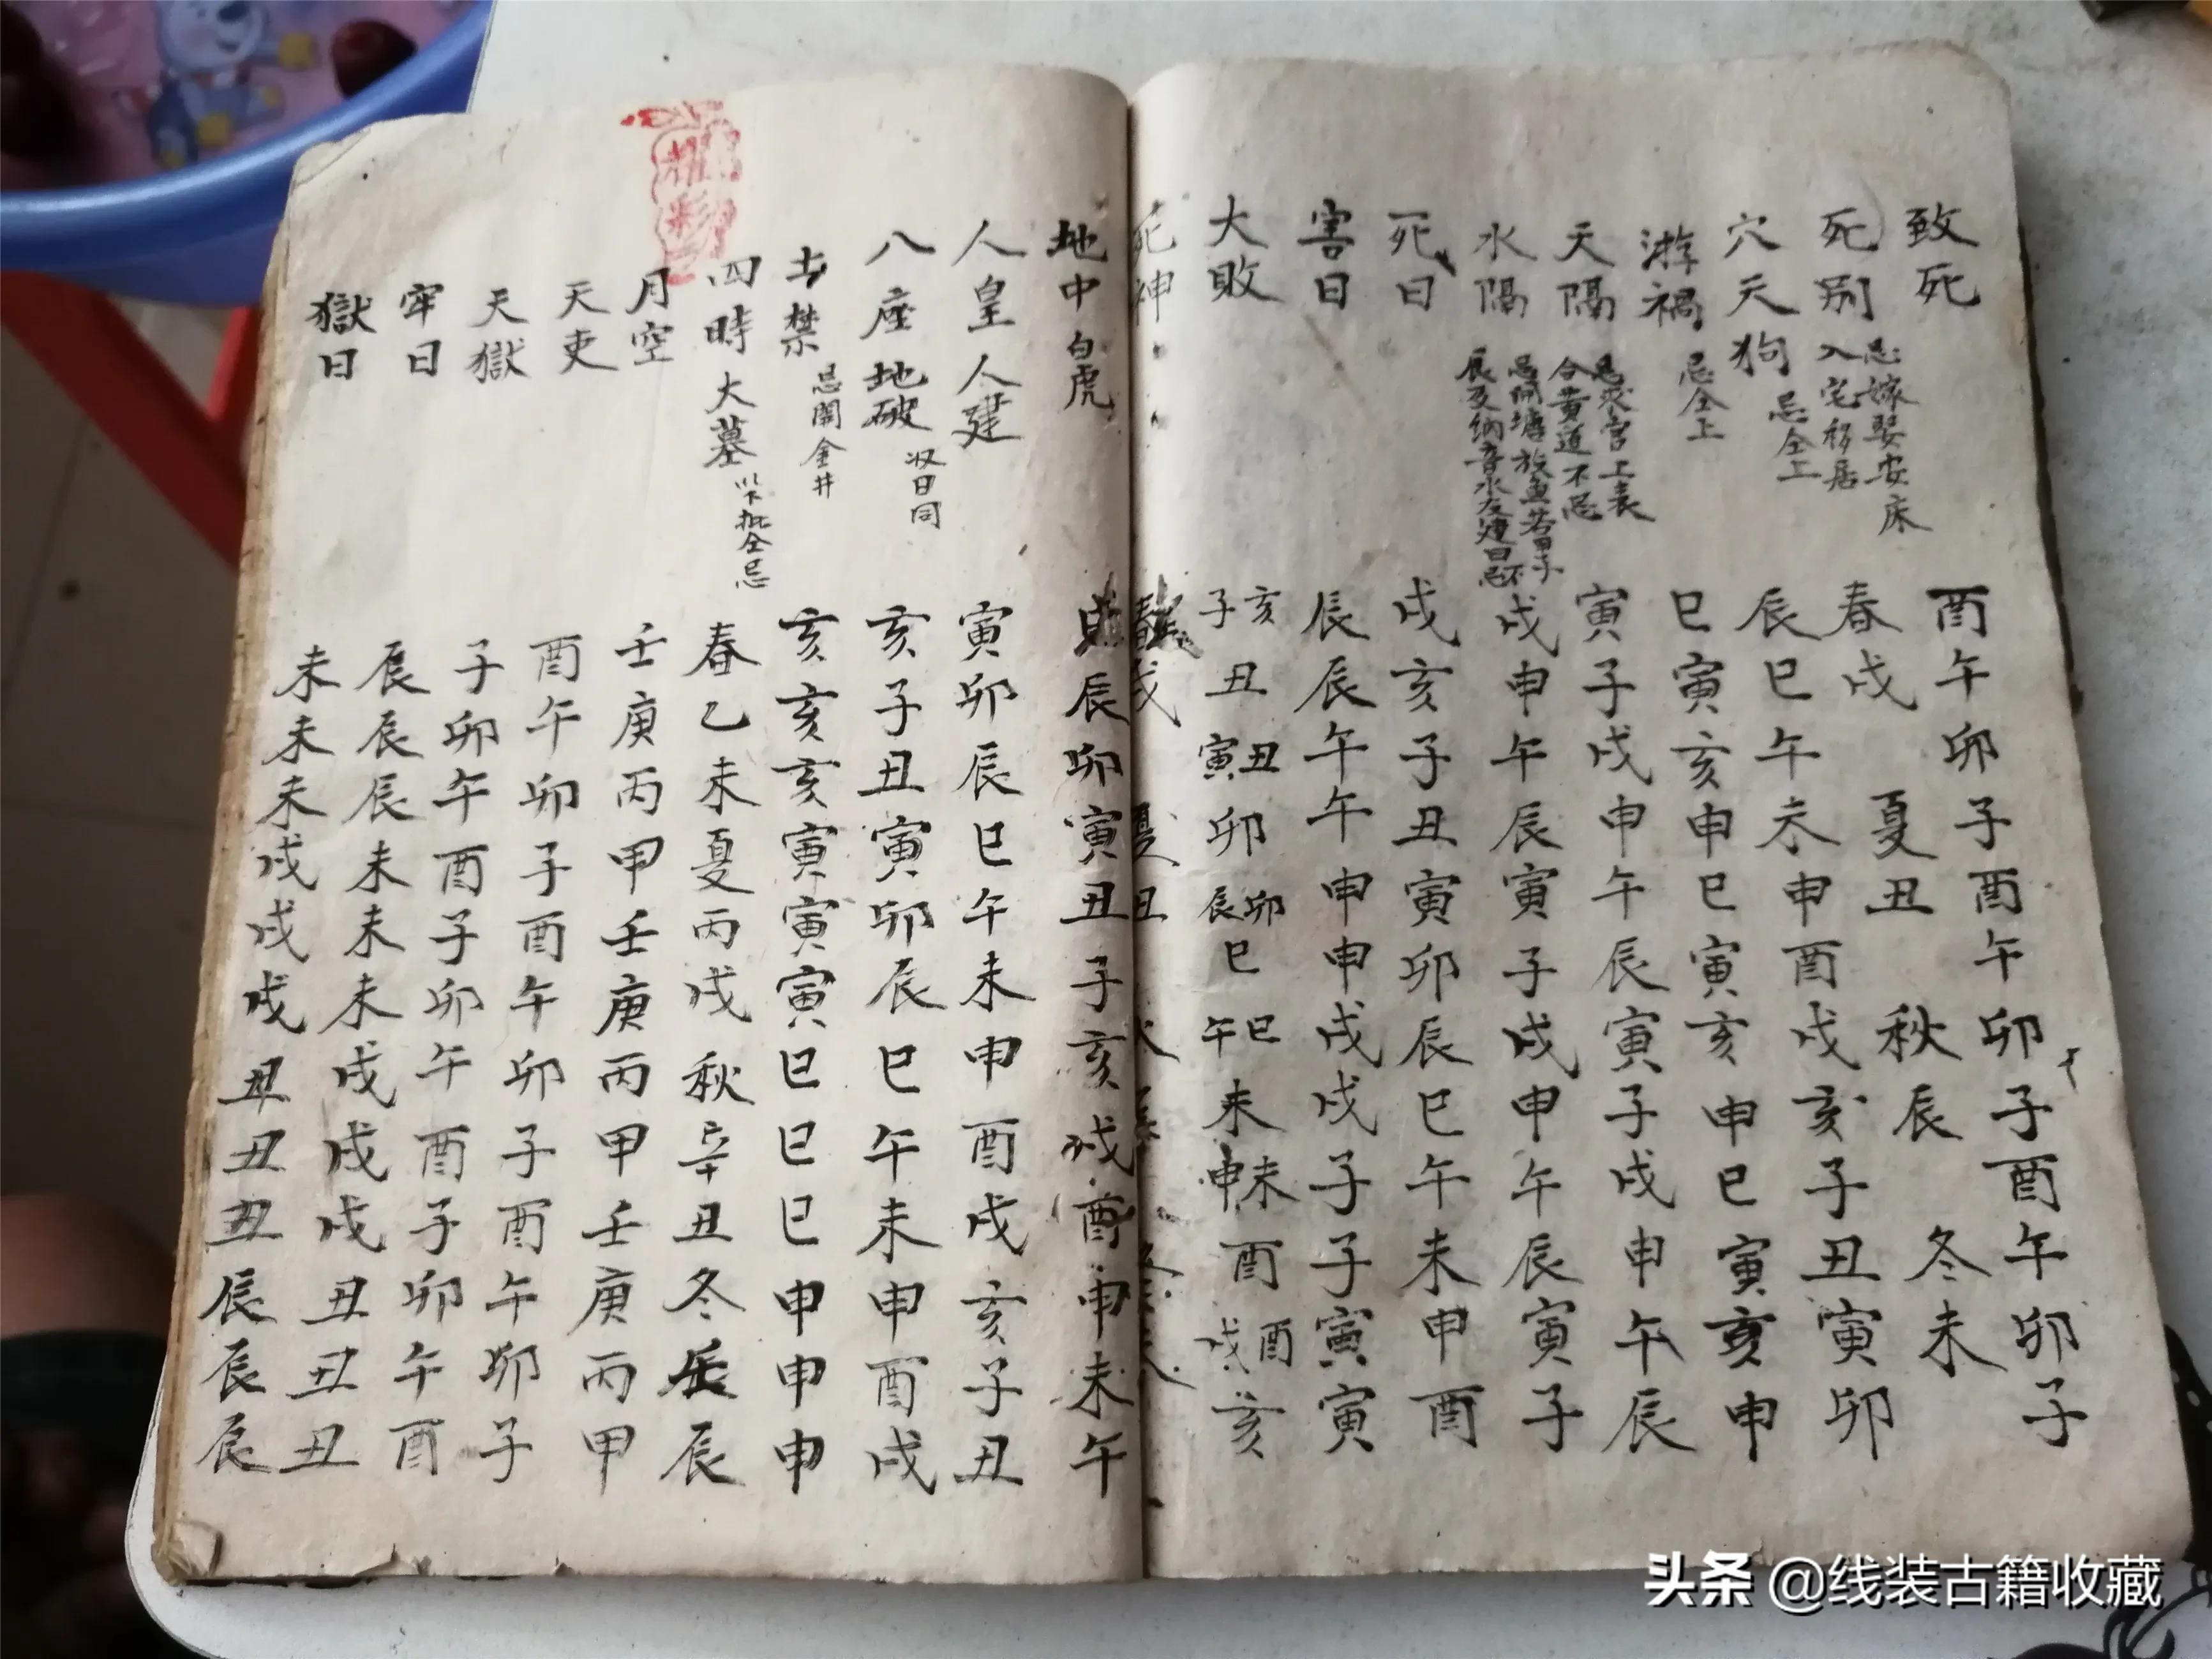 致死 酉午卯子酉午卯子酉午卯子
死別 忌嫁娶安床入宅移居 春戌 夏丑 秋辰 冬未
穴天狗 忌仝上 辰巳午未申酉戌亥子丑寅卯
游禍 忌仝上 巳寅亥申巳寅亥申巳寅亥申
天隔 忌求官上表合黃道不忌 寅子戌申午辰寅子戌申午辰
水隔 忌開塘放魚若甲子辰及納音水 日不忌 戌申午辰寅子戌申午辰寅子
死日 戌亥子丑寅卯辰巳午未申酉
害日 辰辰午午申申戌戌子子寅寅
大敗 亥子丑丑寅卯卯辰巳巳午未未申酉酉戌亥
死神 春戌 夏丑
地中白虎 辰卯寅丑子亥戌酉申未午
人皇人建 寅卯辰巳午未申酉戌亥子丑
八座地破 收日同 亥子丑寅卯辰巳午未申酉戌
土禁 忌開金井 亥亥亥寅寅寅巳巳巳申申申
四時大墓 以下批仝忌 春乙未夏丙戌秋辛丑冬壬辰
月空 壬庚丙甲壬庚丙甲壬庚丙甲
天吏 酉午卯子酉午卯子酉午卯子
天獄 子卯午酉子卯午酉子卯午酉
牢日 辰辰辰未未未戌戌戌丑丑丑
獄日 未未未戌戌戌丑丑丑辰辰辰
耀彩
头条 @线装古籍收藏